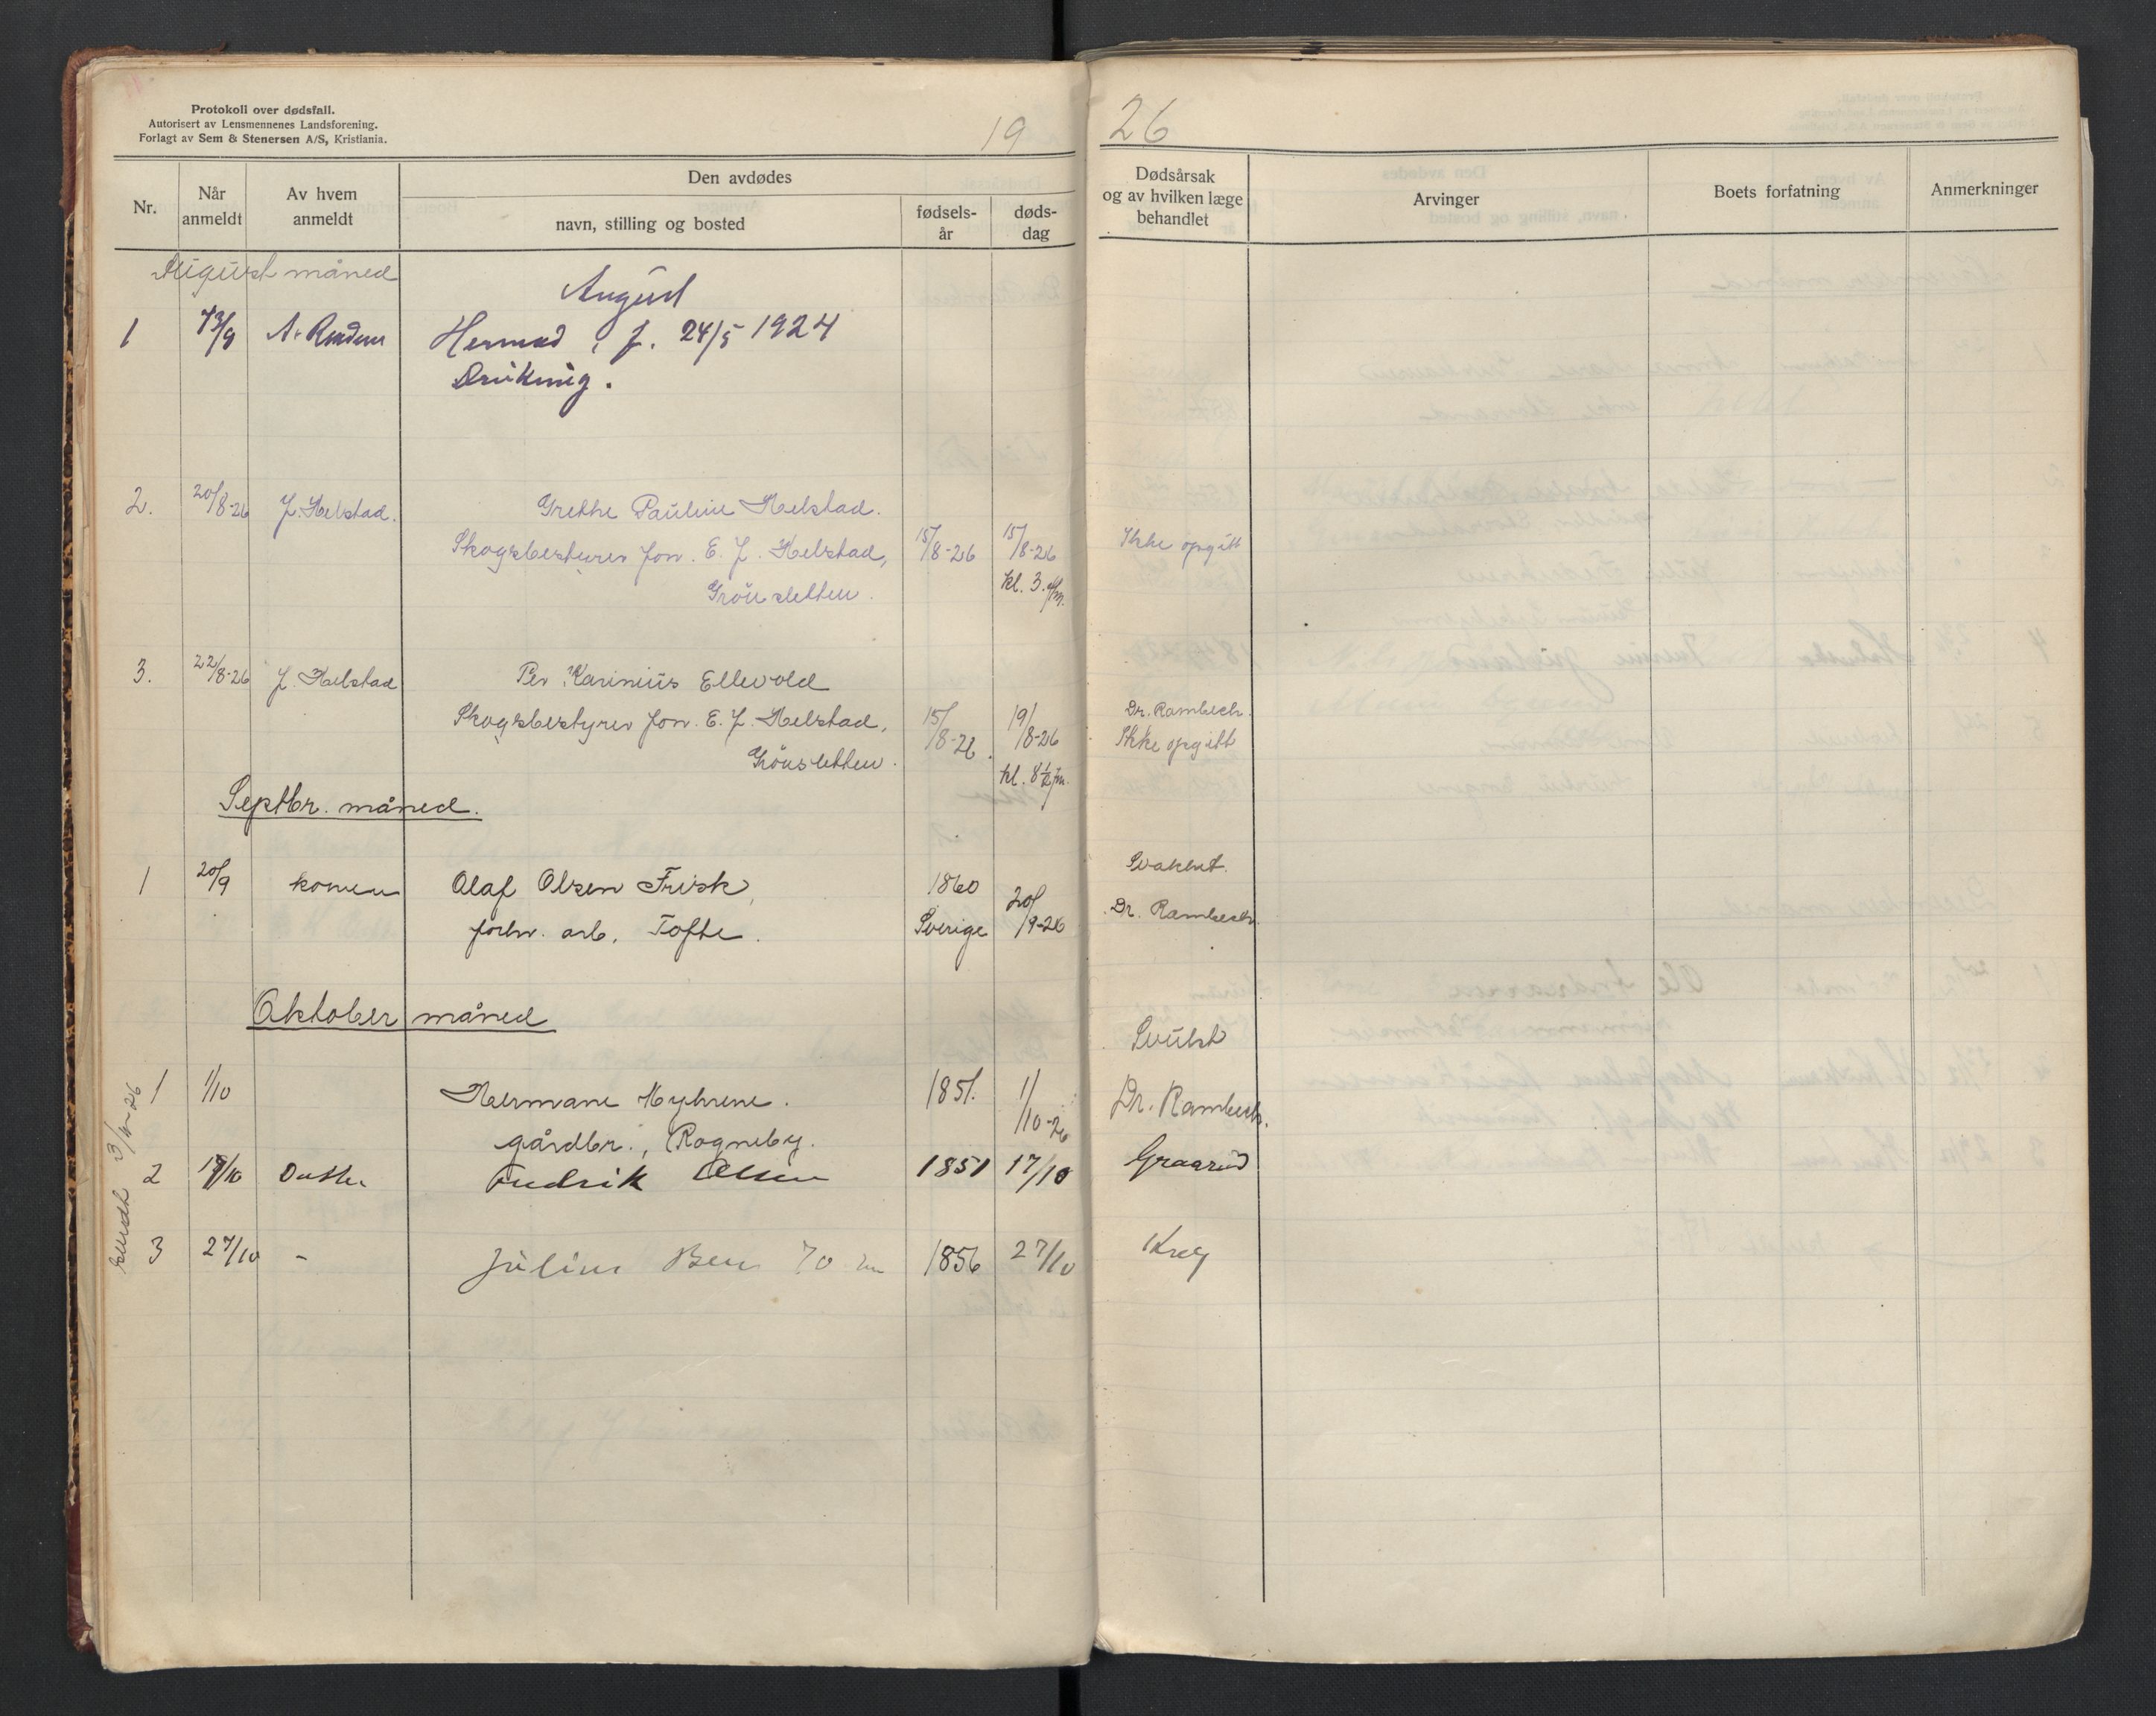 Protokoll over dødsfall.
Autorisert av Lensmennenes Landsforening.
Forlagt av Sem & Stenersen A/S, Kristiania.
19 26
Nr.
Når anmeldt
Av hvem anmeldt
Den avdødes
navn, stilling og bosted
fødsels-år
døds-dag
Dødsårsak og av hvilken læge behandlet
Arvinger
Boets forfatning
Anmerkninger
August måned
August
1 A.
Hermod, f. 24/5 1924
Drukning.
2. 20/8-26 J. Helstad. Grethe Pauline Helstad.
Skogsbestyrer Jon. E. J. Helstad, 15/8-26 15/8-26 Ikke opgitt
Grönsletten. kl. 3
3. 22/8-26 J. Helstad Per Karinius Ellevold
Skogsbestyrer Jon. E. J. Helstad, 15/8-26. 19/8-26 Dr. Rambech. Ikke opgitt
Grönsletten. kl. 8½ fm.
Septbr. måned.
1 20/9 konen Olaf Olsen Frisk, 1860 20/9-26 Svakhet.
forhv. arb. Tofte. Sverige Dr. Rambech.
Oktober måned
Svulst
1 1/10 Hermane Myhrene. 1851. 1/10-26 Dr. Rambech.
gårdbr., Rogneby.
2 Fredrik Olsen 1851 17/10 Graarud
3 27/10 - Julius 70 1856 27/10 Krey
sendt 3/10-26